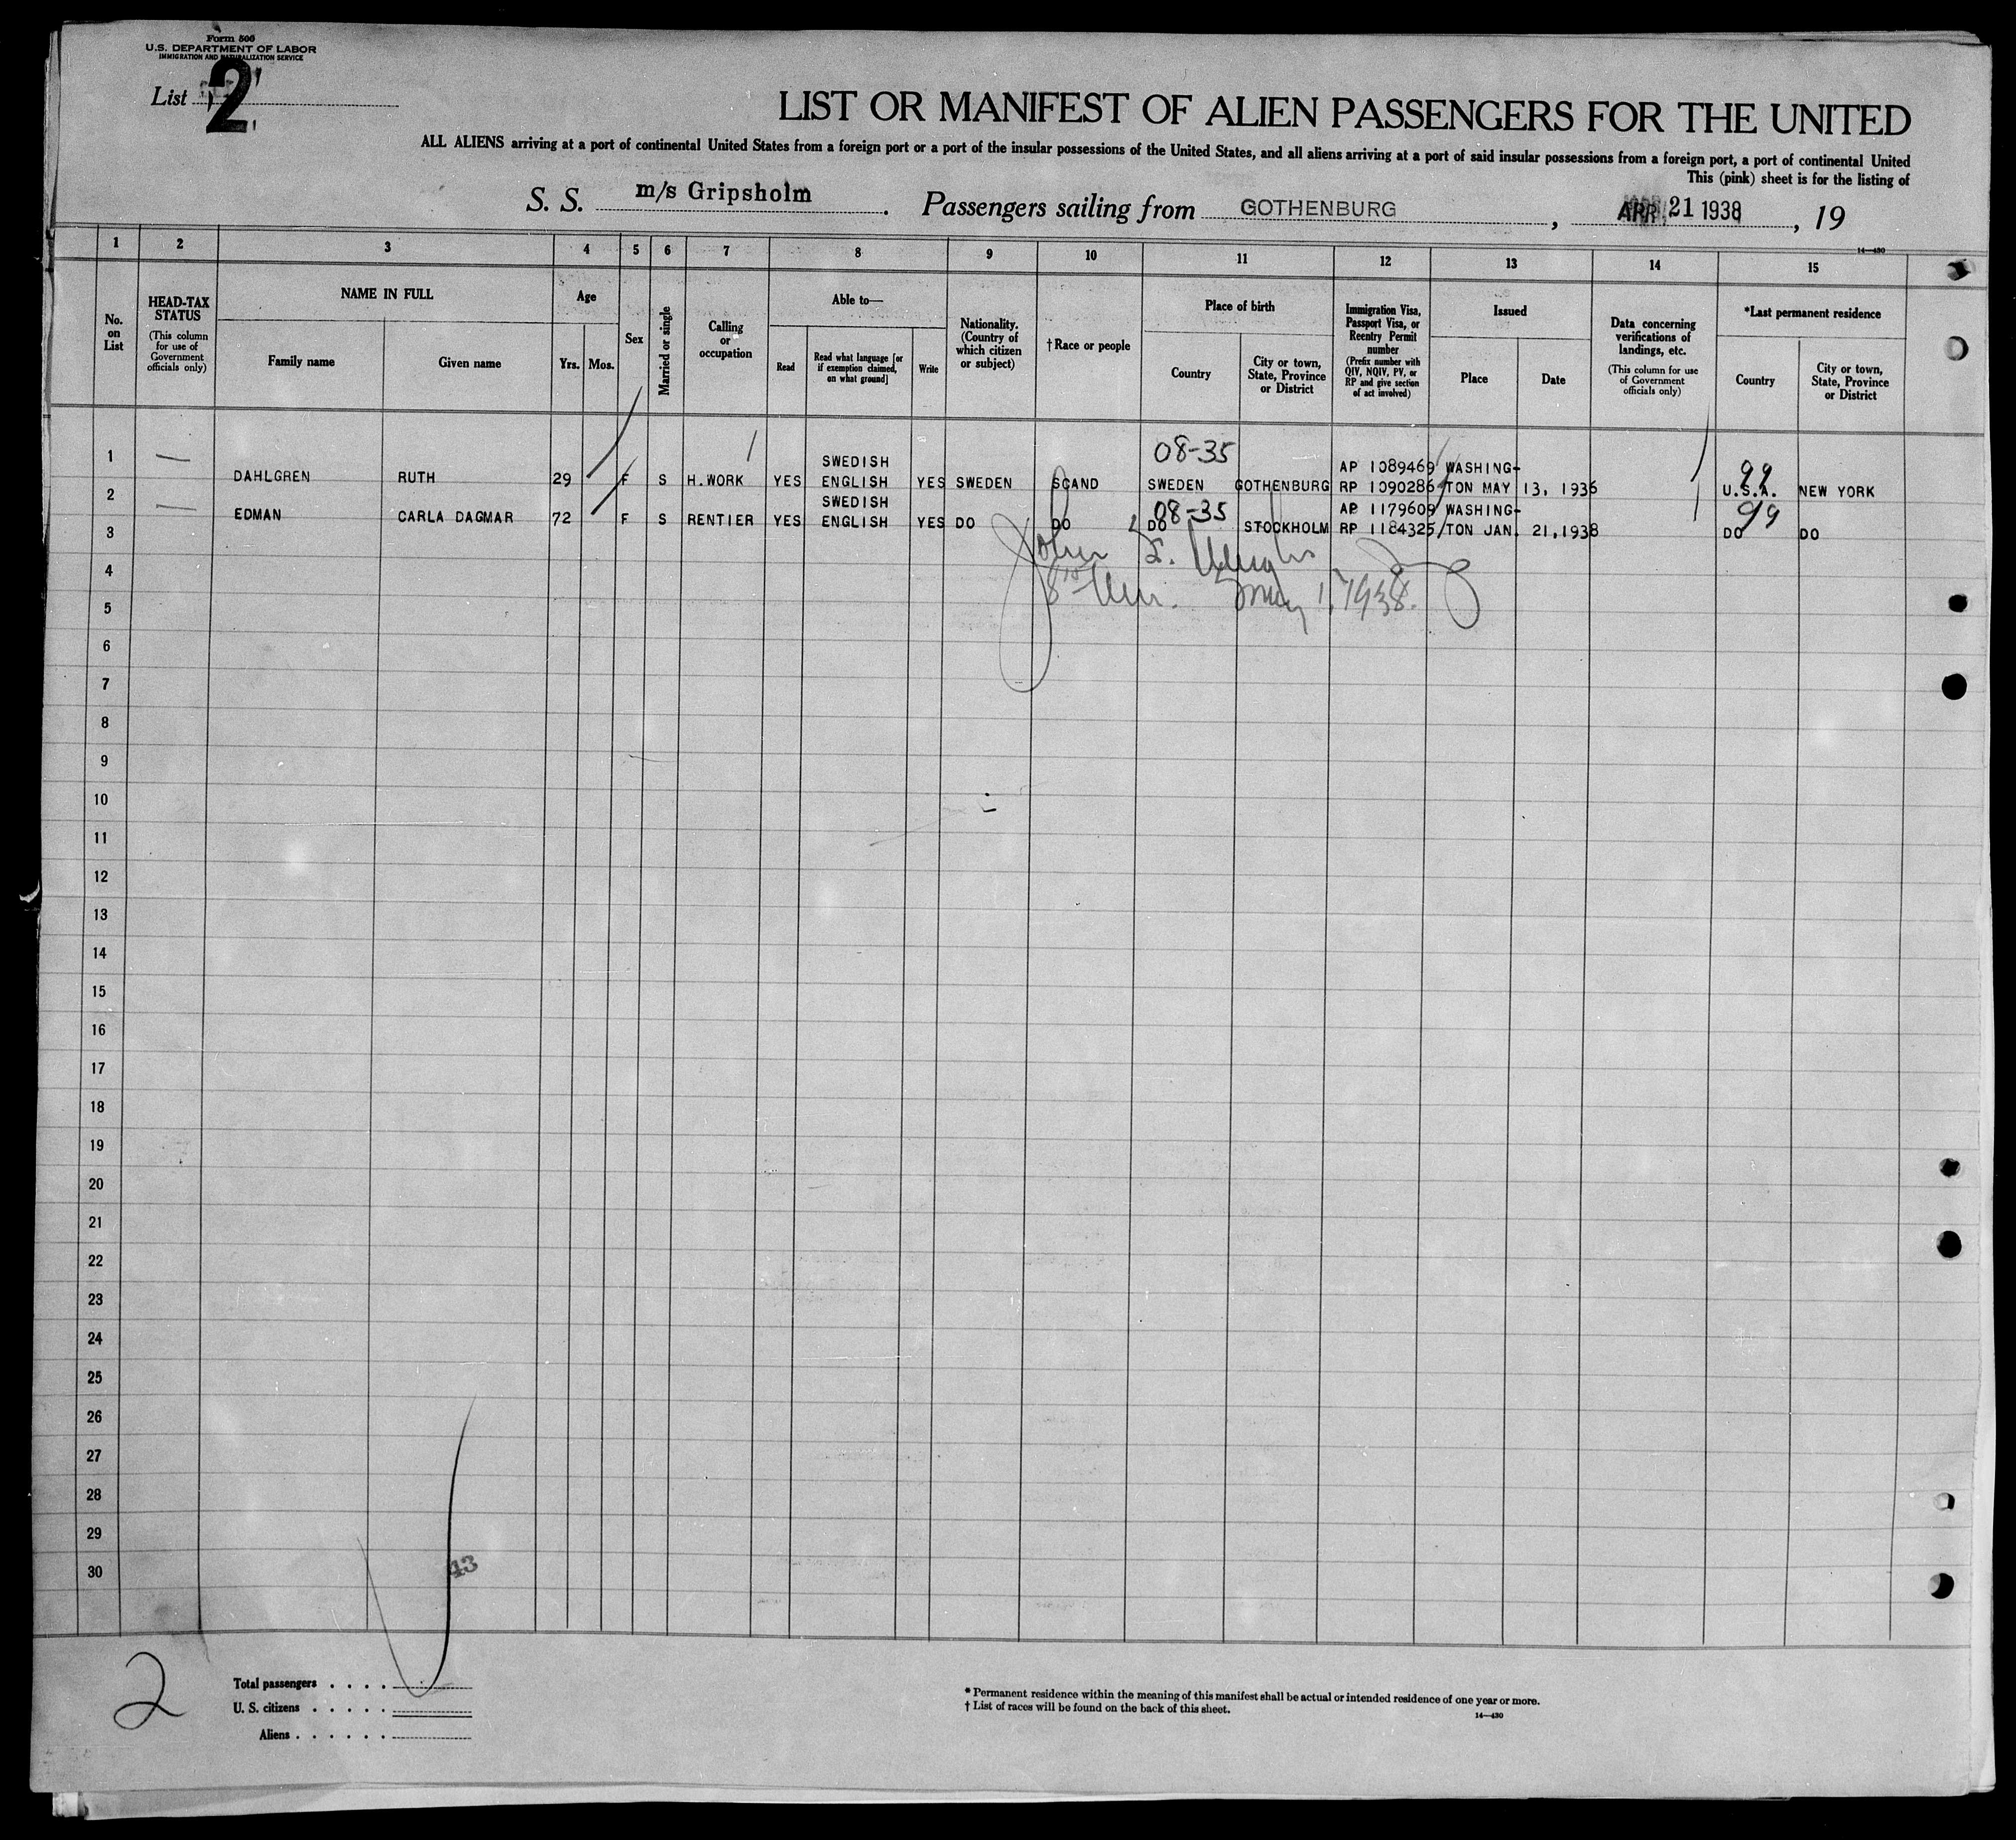 Form 500
U.S. DEPARTMENT OF LABOR
IMMIGRATION AND NATURALIZATION SERVICE
List 2
LIST OR MANIFEST OF ALIEN PASSENGERS FOR THE UNITED
ALL ALIENS arriving at a port of continental United States from a foreign port or a port of the insular possessions of the United States, and all aliens arriving at a port of said insular possessions from a foreign port, a port of continental United
This (pink) sheet is for the listing of
S. S. m/s Gripsholm . Passengers sailing from GOTHENBURG , APR 21 1938 , 19
14—430
1 2 3 4 5 6 7 8 9 10 11 12 13 14 15
No. on List
HEAD-TAX STATUS
(This column for use of Government officials only)
NAME IN FULL
Family name Given name
Age
Yrs. Mos.
Sex
Married or single
Calling or occupation
Able to—
Read
Read what language [or if exemption claimed, on what ground]
Write
Nationality. (Country of which citizen or subject)
† Race or people
Place of birth
Country
City or town, State, Province or District
Immigration Visa, Passport Visa, or Reentry Permit number
(Prefix number with QIV, NQIV, PV, or RP and give section of act involved)
Issued
Place Date
Data concerning verifications of landings, etc.
(This column for use of Government officials only)
*Last permanent residence
Country
City or town, State, Province or District
08-35
SWEDISH AP 1089469 WASHING-
99
1 DAHLGREN RUTH 29 F S H.WORK YES ENGLISH YES SWEDEN SCAND SWEDEN GOTHENBURG RP 1090286 TON MAY 13, 1936 U.S.A. NEW YORK
08-35
SWEDISH AP 1179609 WASHING-
99
2 EDMAN CARLA DAGMAR 72 F S RENTIER YES ENGLISH YES DO DO DO STOCKHOLM RP 1184325 TON JAN. 21,1938 DO DO
3
John
4
May 1, 1938.
5
6
7
8
9
10
11
12
13
14
15
16
17
18
19
20
21
22
23
24
25
26
27
28
29
30
43
2
Total passengers . . . .
U. S. citizens . . . . .
Aliens . . . . . .
* Permanent residence within the meaning of this manifest shall be actual or intended residence of one year or more.
† List of races will be found on the back of this sheet.
14—430